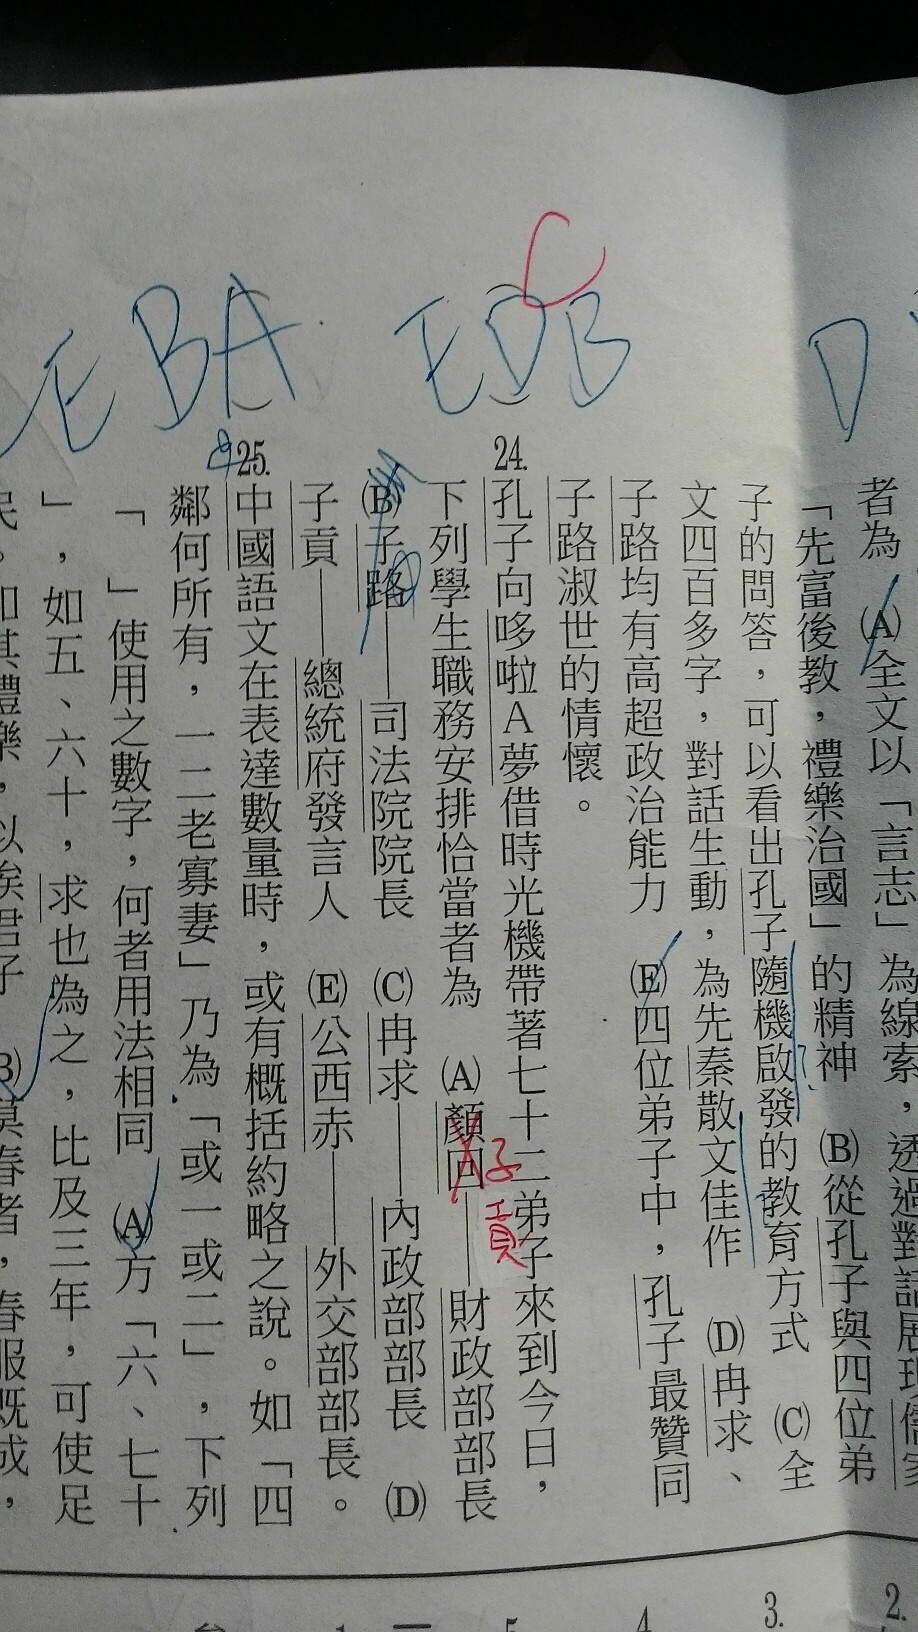 者為 (A)全文以「言志」為線索，透過對話展現儒家
「先富後教，禮樂治國」的精神 (B)從孔子與四位弟
子的問答，可以看出孔子隨機啟發的教育方式 (C)全
文四百多字，對話生動，為先秦散文佳作 (D)冉求、
子路均有高超政治能力 (E)四位弟子中，孔子最贊同
子路淑世的情懷。
D
EDB
C
24.
孔子向哆啦A夢借時光機帶著七十二弟子來到今日，
下列學生職務安排恰當者為 (A)顏回——財政部部長
子貢
(B)子路——司法院院長 (C)冉求——內政部部長 (D)
子貢——總統府發言人 (E)公西赤——外交部部長。
EBA
25.
中國語文在表達數量時，或有概括約略之說。如「四
鄰何所有，一二老寡妻」乃為「或一或二」，下列
「　」使用之數字，何者用法相同 (A)方「六、七十
」，如五、六十，求也為之，比及三年，可使足
民。如其禮樂，以俟君子 (B)莫春者，春服既成，
2.
3.
4
5